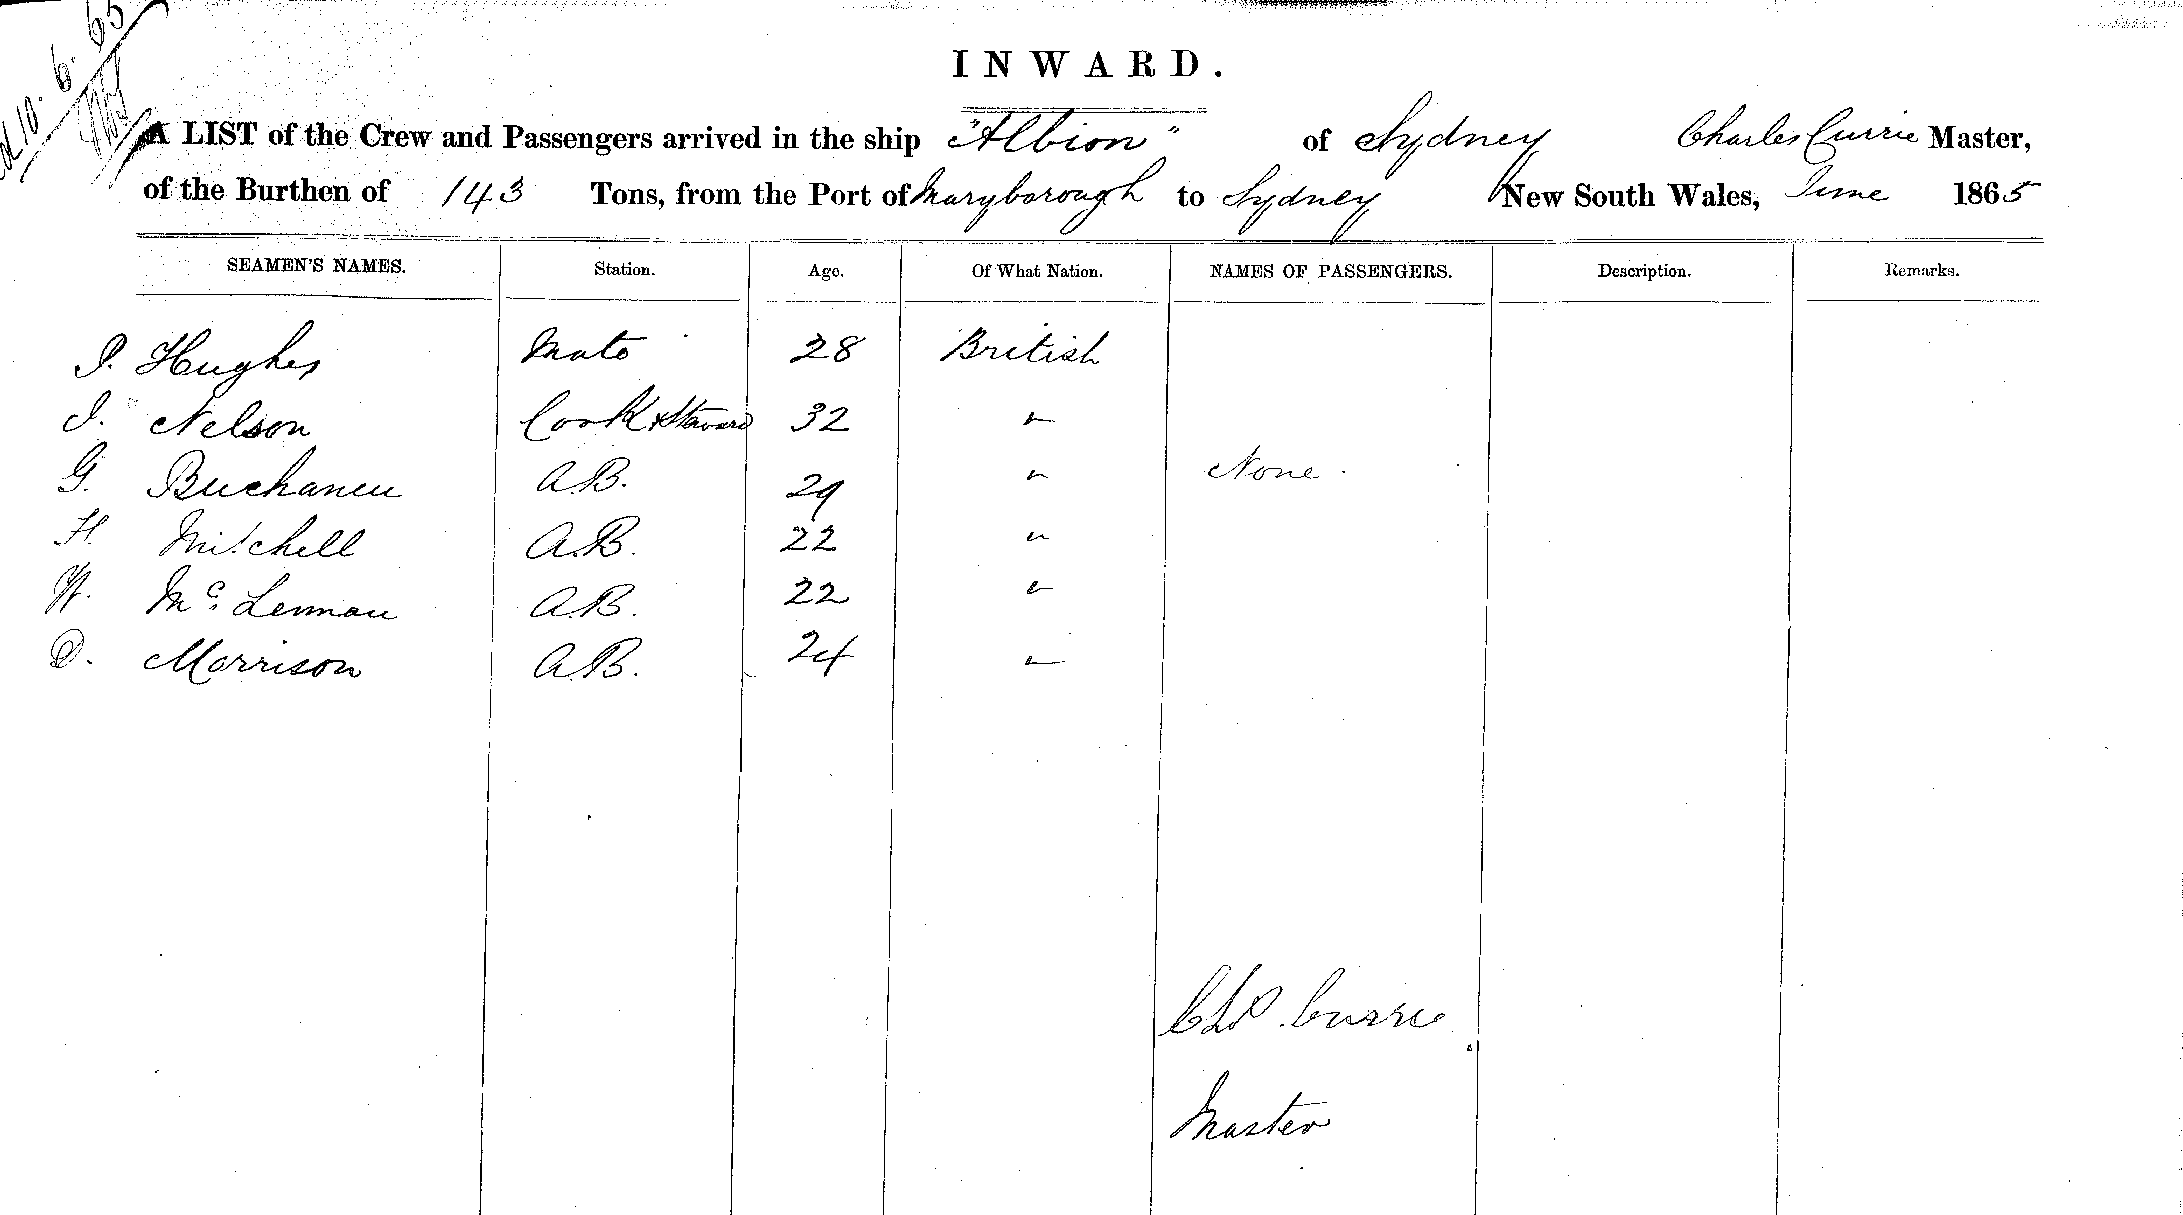 10. 6. 65
INWARD.
A LIST of the Crew and Passengers arrived in the ship "Albion" of Sydney Charles Currie Master,
of the Burthen of 143 Tons, from the Port of Maryborough to Sydney New South Wales, June 1865
SEAMEN'S NAMES. Station. Age. Of What Nation. NAMES OF PASSENGERS. Description. Remarks.
P. Hughes Mate 28 British
J. Nelson Cook & Steward 32 "
G. Buchanan A.B. 29 " None
H. Mitchell A.B. 22 "
W. Mc. Lennan A.B. 22 "
D. Morrison A.B. 24 "
Chs. Currie
Master